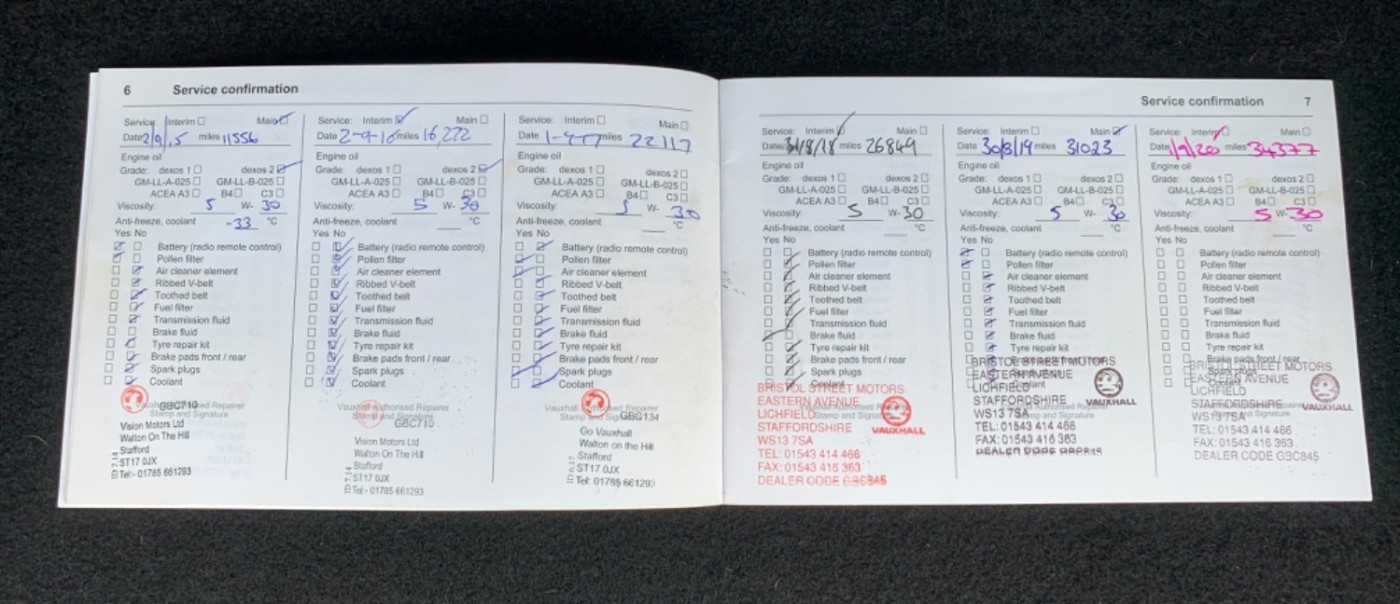 6 Service confirmation
Service: Interim Main
Date 2/9/15 miles 11556
Engine oil
Grade: dexos 1 dexos 2
GM-LL-A-025 GM-LL-B-025
ACEA A3 B4 C3
Viscosity: 5 W- 30
Anti-freeze, coolant -33 °C
Yes No
Battery (radio remote control)
Pollen filter
Air cleaner element
Ribbed V-belt
Toothed belt
Fuel filter
Transmission fluid
Brake fluid
Tyre repair kit
Brake pads front / rear
Spark plugs
Coolant
Vauxhall Authorised Repairer
Stamp and Signature
GBC710
Vision Motors Ltd
Walton On The Hill
Stafford
ST17 0JX
Tel:- 01785 661293
Service: Interim Main
Date 2-9-16 miles 16,272
Engine oil
Grade: dexos 1 dexos 2
GM-LL-A-025 GM-LL-B-025
ACEA A3 B4 C3
Viscosity: 5 W- 30
Anti-freeze, coolant °C
Yes No
Battery (radio remote control)
Pollen filter
Air cleaner element
Ribbed V-belt
Toothed belt
Fuel filter
Transmission fluid
Brake fluid
Tyre repair kit
Brake pads front / rear
Spark plugs
Coolant
Vauxhall Authorised Repairer
Stamp and Signature
GBC710
Vision Motors Ltd
Walton On The Hill
Stafford
ST17 0JX
Tel:- 01785 661293
Service: Interim Main
Date miles 22117
Engine oil
Grade: dexos 1 dexos 2
GM-LL-A-025 GM-LL-B-025
ACEA A3 B4 C3
Viscosity: 5 W- 30
Anti-freeze, coolant °C
Yes No
Battery (radio remote control)
Pollen filter
Air cleaner element
Ribbed V-belt
Toothed belt
Fuel filter
Transmission fluid
Brake fluid
Tyre repair kit
Brake pads front / rear
Spark plugs
Coolant
Vauxhall Authorised Repairer
Stamp and Signature
GBC134
Go Vauxhall
Walton on the Hill
Stafford
ST17 0JX
Tel: 01785 661293
Service confirmation 7
Service: Interim Main
Date 31/8/18 miles 26849
Engine oil
Grade: dexos 1 dexos 2
GM-LL-A-025 GM-LL-B-025
ACEA A3 B4 C3
Viscosity: 5 W- 30
Anti-freeze, coolant °C
Yes No
Battery (radio remote control)
Pollen filter
Air cleaner element
Ribbed V-belt
Toothed belt
Fuel filter
Transmission fluid
Brake fluid
Tyre repair kit
Brake pads front / rear
Spark plugs
Coolant
BRISTOL STREET MOTORS
EASTERN AVENUE
LICHFIELD
STAFFORDSHIRE
WS13 7SA
TEL: 01543 414 466
FAX: 01543 416 363
DEALER CODE GBC845
VAUXHALL
Service: Interim Main
Date 30/8/19 miles 31023
Engine oil
Grade: dexos 1 dexos 2
GM-LL-A-025 GM-LL-B-025
ACEA A3 B4 C3
Viscosity: 5 W- 30
Anti-freeze, coolant °C
Yes No
Battery (radio remote control)
Pollen filter
Air cleaner element
Ribbed V-belt
Toothed belt
Fuel filter
Transmission fluid
Brake fluid
Tyre repair kit
BRISTOL STREET MOTORS
EASTERN AVENUE
LICHFIELD
STAFFORDSHIRE
WS13 7SA
TEL: 01543 414 466
FAX: 01543 416 363
DEALER CODE
VAUXHALL
Service: Interim Main
Date 1/9/20 miles 34377
Engine oil
Grade: dexos 1 dexos 2
GM-LL-A-025 GM-LL-B-025
ACEA A3 B4 C3
Viscosity: 5 W-30
Anti-freeze, coolant °C
Yes No
Battery (radio remote control)
Pollen filter
Air cleaner element
Ribbed V-belt
Toothed belt
Fuel filter
Transmission fluid
Brake fluid
Tyre repair kit
Brake pads front / rear
Spark plugs
BRISTOL STREET MOTORS
EASTERN AVENUE
LICHFIELD
STAFFORDSHIRE
WS13 7SA
TEL: 01543 414 466
FAX: 01543 416 363
DEALER CODE GBC845
VAUXHALL